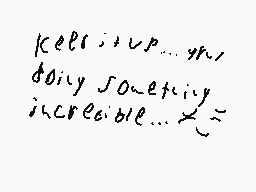 Keep it up... your
doing something
increadible...